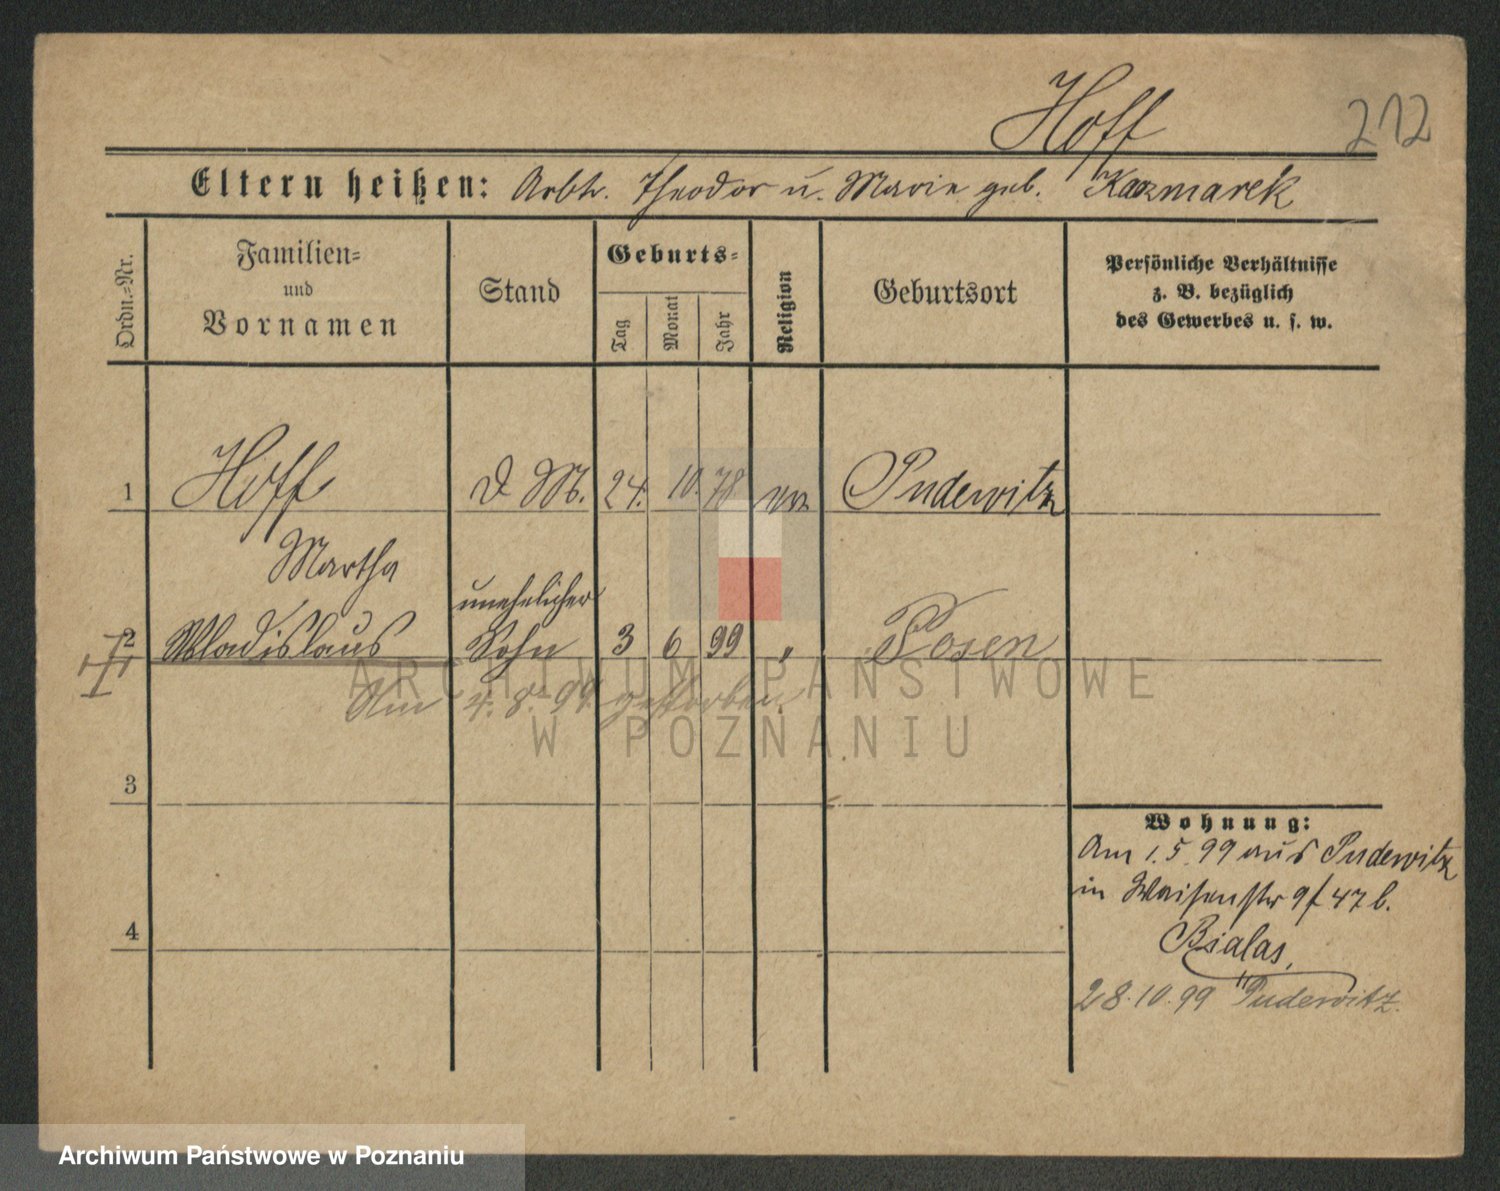 Hoff
212
Eltern heißen: Arbtr. Theodor u. Marie geb. Kazmarek
Ordn.=Nr.
Familien=
und
Vornamen
Stand
Geburts=
Tag
Monat
Jahr
Religion
Geburtsort
Persönliche Verhältnisse
z. B. bezüglich
des Gewerbes u. s. w.
1 Hoff D M. 24. 10. 78 Pudewitz
Martha
unehelicher
2 Wladislaus Sohn 3 6 99 " Posen
Am 4. 8. 99. gestorben.
3
4
Wohnung:
Am 1. 5. 99 aus Pudewitz
in Waisenstr 9 / 47 b.
Bialas,
28. 10. 99 Pudewitz.
ARCHIWUM PAŃSTWOWE
W POZNANIU
Archiwum Państwowe w Poznaniu